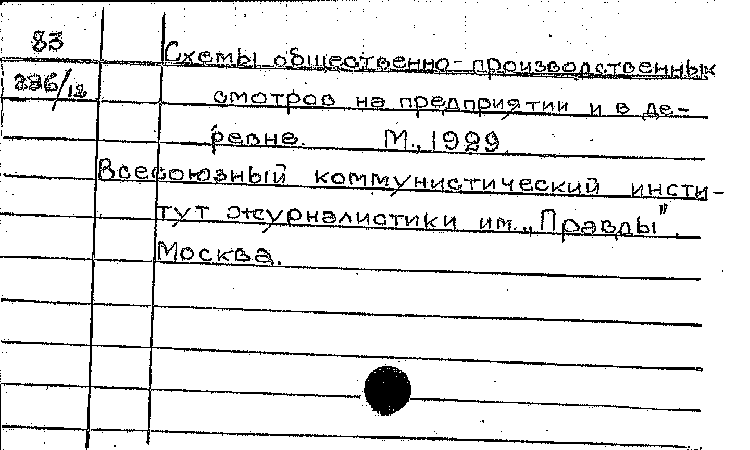 83
Схемы общественно-производственных
226/12
смотров на предприятии и в де-
ревне. М., 1929.
Всесоюзный коммунистический инсти-
тут журналистики им. „Правды”.
Москва.